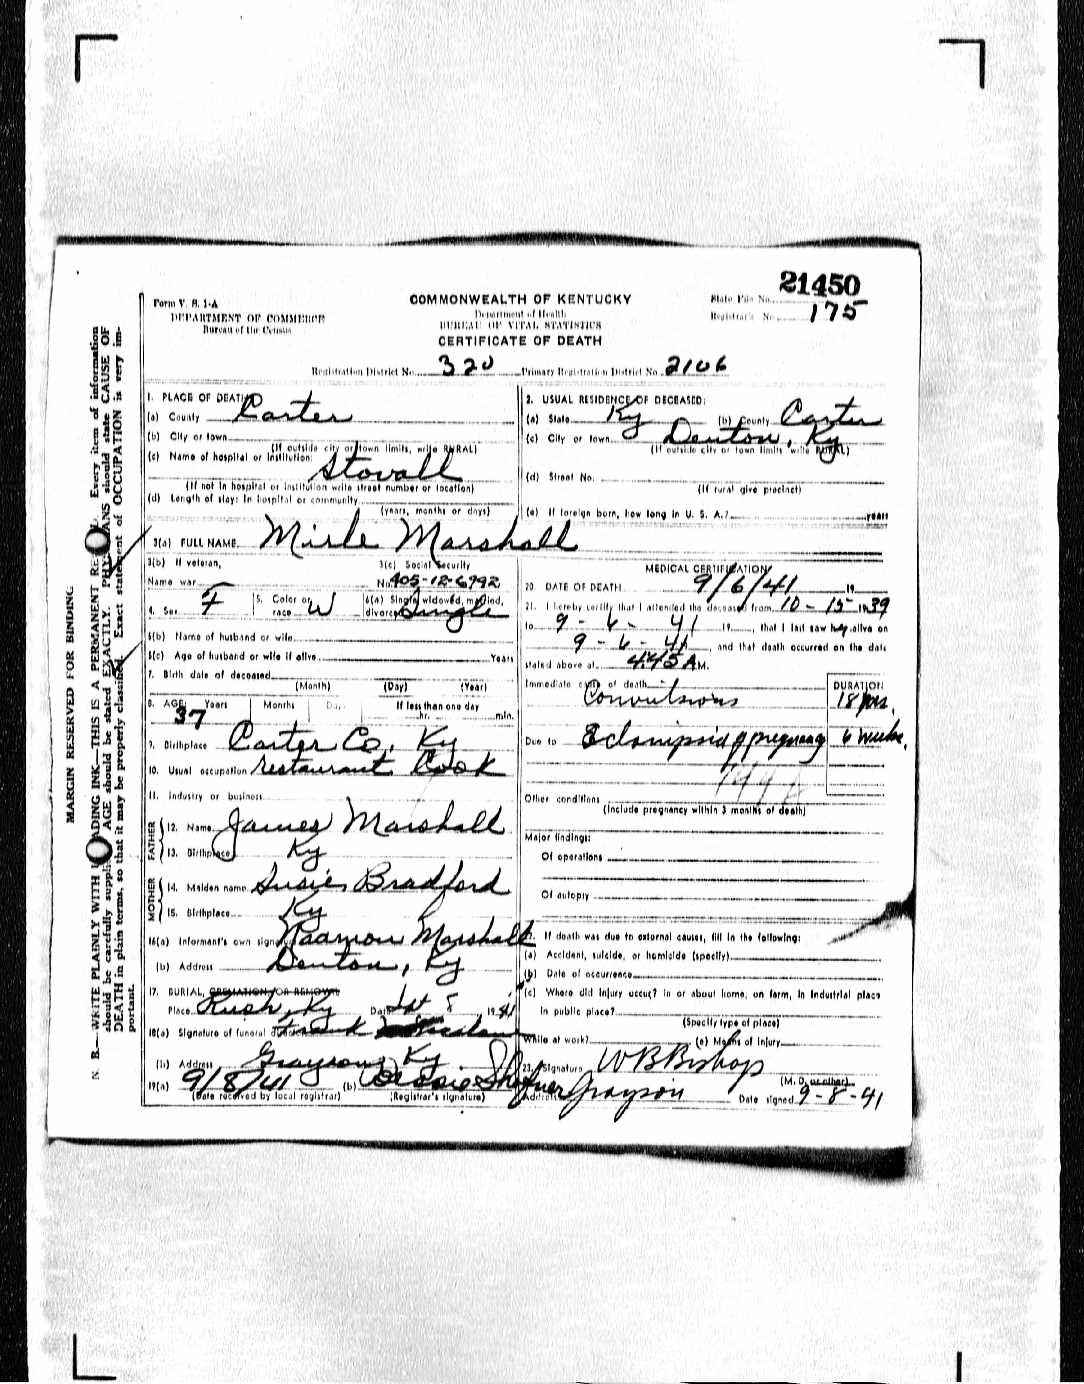 21450
Form V. S. 1-A
COMMONWEALTH OF KENTUCKY
State File No.
DEPARTMENT OF COMMERCE
Department of Health
Registrar's No. 175
Bureau of the Census
BUREAU OF VITAL STATISTICS
CERTIFICATE OF DEATH
Registration District No. 320 Primary Registration District No. 2106
MARGIN RESERVED FOR BINDING
N. B.—WRITE PLAINLY WITH UNFADING INK—THIS IS A PERMANENT RE Every item of information
should be carefully supplied AGE should be stated EXACTLY. PHYSICIANS should state CAUSE OF
DEATH in plain terms, so that it may be properly classified. Exact statement of OCCUPATION is very im-
portant.
1. PLACE OF DEATH:
(a) County Carter
(b) City or town
(If outside city or town limits, write RURAL)
(c) Name of hospital or institution: Stovall
(If not in hospital or institution write street number or location)
(d) Length of stay: In hospital or community
(years, months or days)
2. USUAL RESIDENCE OF DECEASED:
(a) State Ky (b) County Carter
(c) City or town Denton, Ky
(If outside city or town limits write RURAL)
(d) Street No.
(If rural give precinct)
(e) If foreign born, how long in U. S. A.? years
3(a) FULL NAME Mirle Marshall
3(b) If veteran,
Name war
3(c) Social Security
No. 405-12-6792
4. Sex F
5. Color or race W
6(a) Single, widowed, married, divorced Single
6(b) Name of husband or wife
6(c) Age of husband or wife if alive Years
7. Birth date of deceased
(Month) (Day) (Year)
8. AGE Years Months Days If less than one day
37 hr. min.
9. Birthplace Carter Co, Ky
10. Usual occupation restaurant Cook
11. Industry or business
FATHER
12. Name James Marshall
13. Birthplace Ky
MOTHER
14. Maiden name Susie Bradford
15. Birthplace Ky
16(a) Informant's own signature Marshall
(b) Address Denton, Ky
17. BURIAL, CREMATION, OR REMOVAL
Place Rush, Ky Date 8 1941
18(a) Signature of funeral director Frank
(b) Address Grayson, Ky
19(a) 9/8/41 (b) Dessie
(Date received by local registrar) (Registrar's signature)
MEDICAL CERTIFICATION
20. DATE OF DEATH 9/6/41 19
21. I hereby certify that I attended the deceased from 10-15-1939
to 9-6-41 19, that I last saw her alive on
9-6-41, and that death occurred on the date
stated above at 4:45 A M.
Immediate cause of death DURATION
Convulsions 18 yrs.
Due to Eclampsia of pregnancy 6 weeks.
Other conditions
(Include pregnancy within 3 months of death)
Major findings:
Of operations
Of autopsy
If death was due to external causes, fill in the following:
(a) Accident, suicide, or homicide (specify)
(b) Date of occurrence
(c) Where did injury occur? in or about home, on farm, in industrial place
in public place?
(Specify type of place)
While at work? (e) Means of injury
23. Signature W B Bishop
(M. D. or other)
Address Grayson Date signed 9-8-41